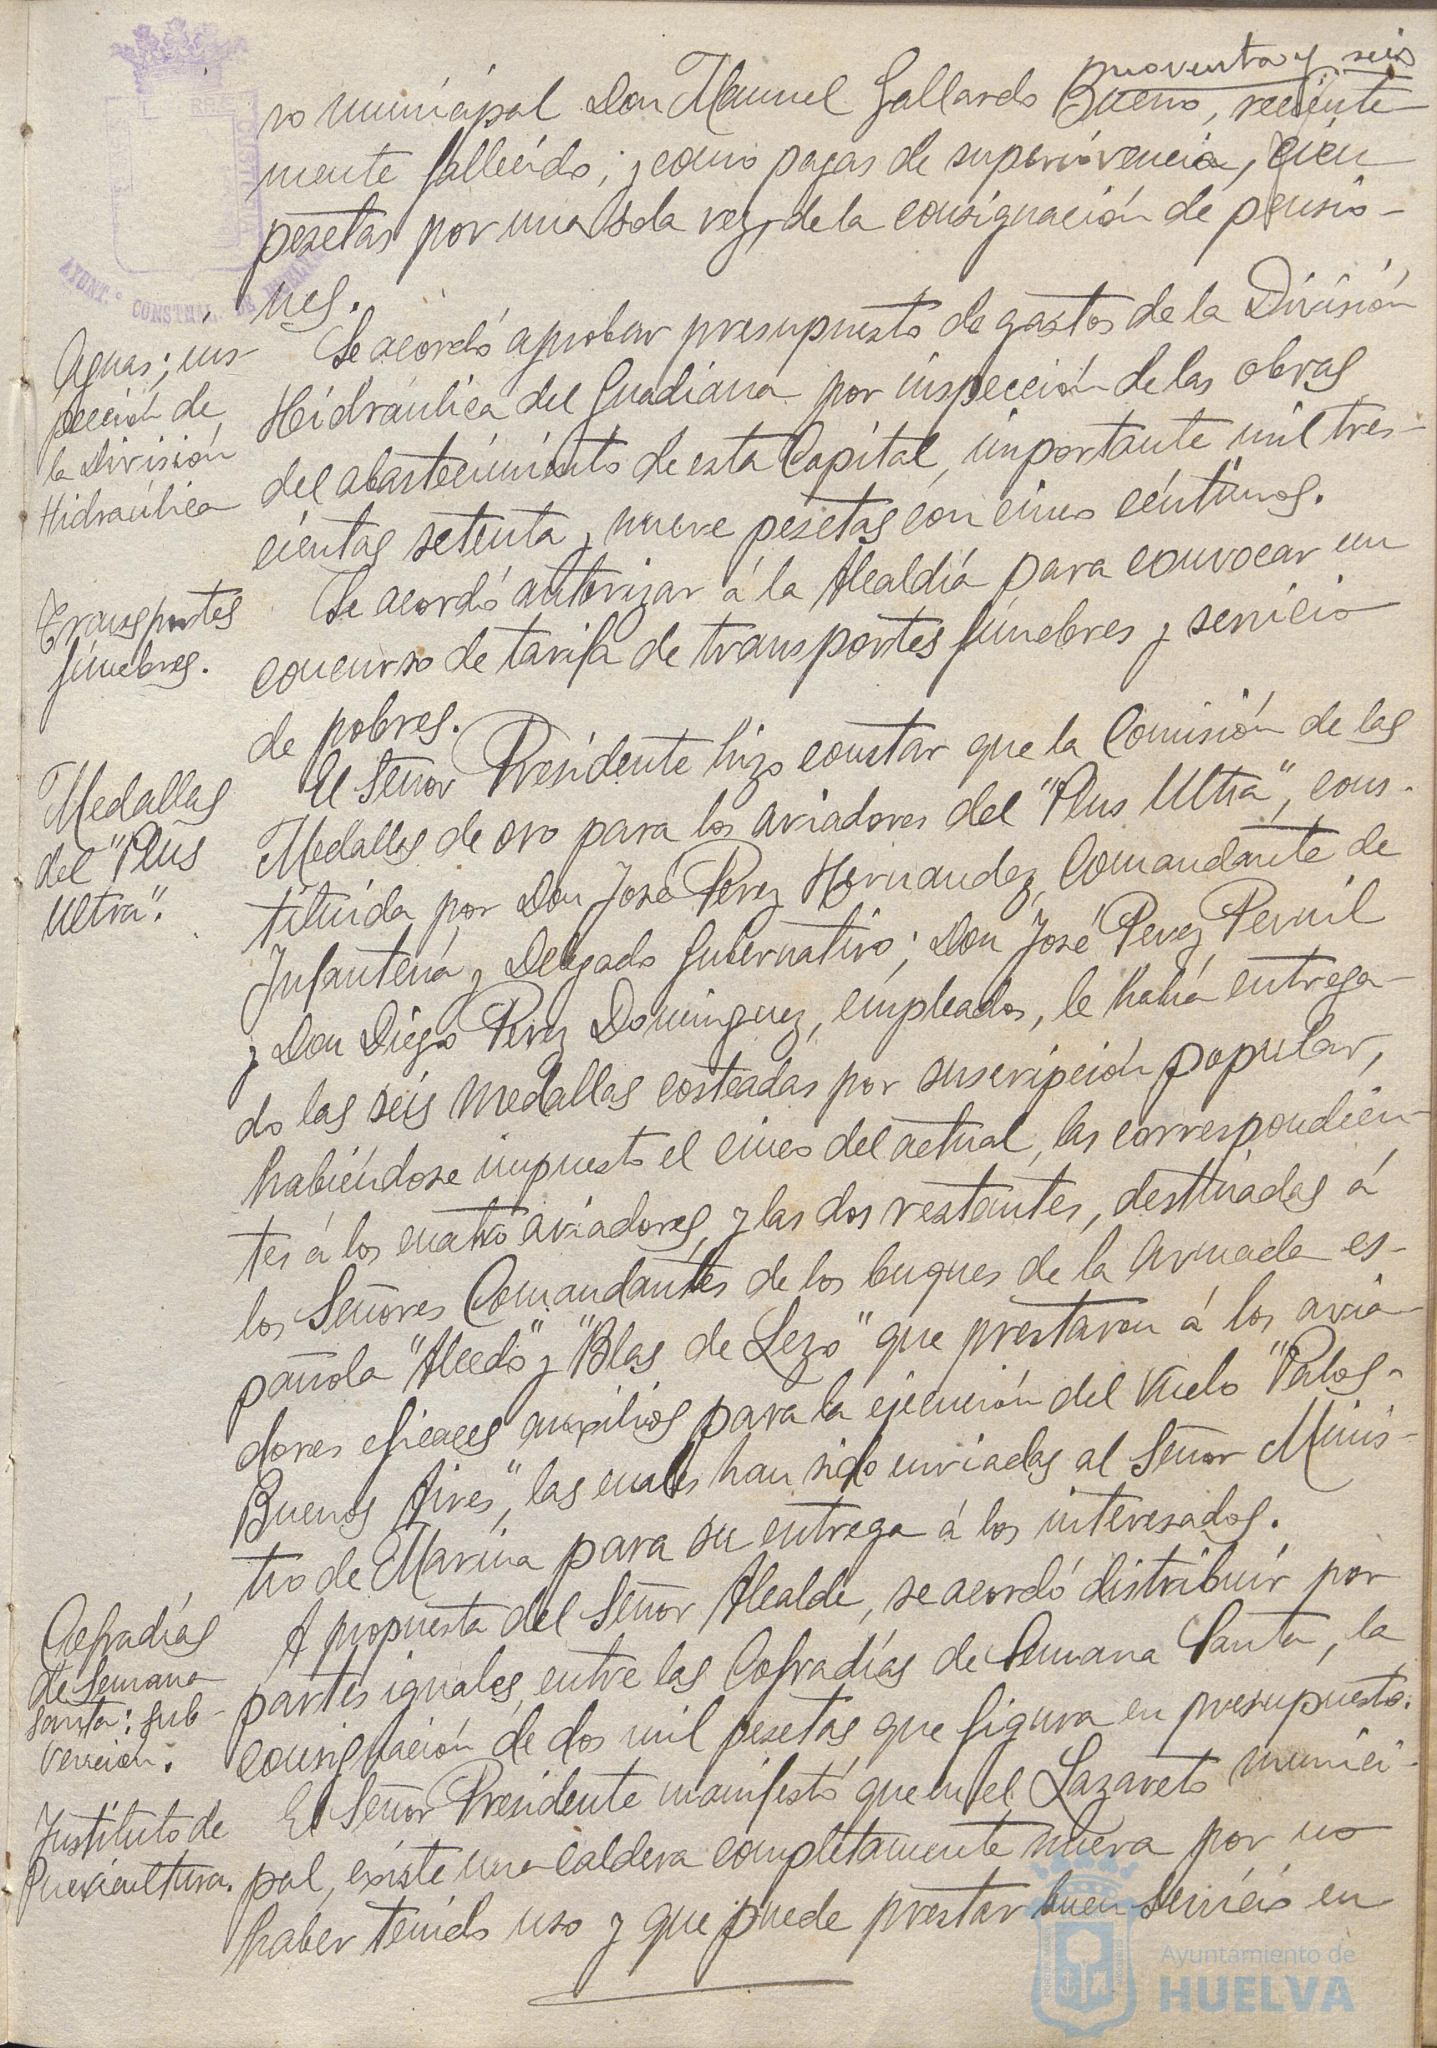 noventa y seis
ro municipal Don Manuel Gallardo Bueno, reciente-
mente fallecido; y como pagas de supervivencia, cien
pesetas por una sola vez, de la consignación de pensio-
nes.
AYUNT.º CONSTNAL. DE HUELVA
Aguas; ins-
pección de
la División
Hidraúlica
Se acordó aprobar presupuesto de gastos de la División
Hidraúlica del Guadiana por inspección de las obras
del abastecimiento de esta Capital, importante mil tres-
cientas setenta y nueve pesetas con cinco céntimos.
Transportes
fúnebres.
Se acordó autorizar á la Alcaldía para convocar un
concurso de tarifa de transportes fúnebres y servicio
de pobres.
Medallas
del "Plus
Ultra".
El Señor Presidente hizo constar que la Comisión de las
Medallas de oro para los aviadores del "Plus Ultra", cons-
tituida por Don José Perez Hernandez, Comandante de
Infantería y Delegado Gubernativo; Don José Perez Pernil
y Don Diego Perez Dominguez, empleados, le había entrega-
do las seis medallas costeadas por suscripción popular,
habiéndose impuesto el cinco del actual, las correspondien-
tes á los cuatro aviadores, y las dos restantes, destinadas á
los Señores Comandantes de los buques de la Armada es-
pañola "Alcedo" y "Blas de Lezo" que prestaron á los avia-
dores eficaces auxilios para la ejecución del vuelo "Palos-
Buenos Aires", las cuales han sido enviadas al Señor Minis-
tro de Marina para su entrega á los interesados.
Cofradías
de Semana
Santa: sub-
vención.
A propuesta del Señor Alcalde, se acordó distribuír por
partes iguales, entre las Cofradías de Semana Santa, la
consignación de dos mil pesetas que figura en presupuesto.
Instituto de
Puericultura.
El Señor Presidente manifestó que en el Lazareto munici-
pal, existe una caldera completamente nueva por no
haber tenido uso y que puede prestar buen servicio en
Ayuntamiento de
HUELVA